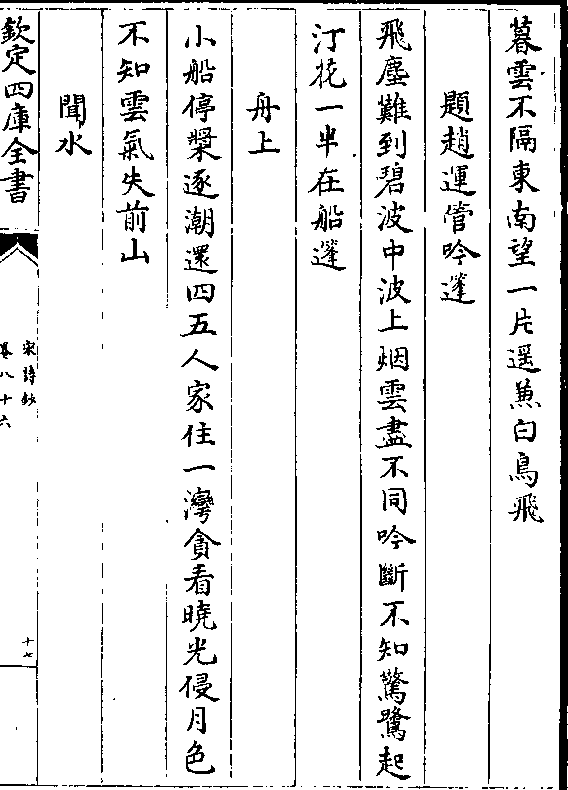 暮雲不隔東南望一片遥兼白鳥飛
題趙運管吟篷
飛塵難到碧波中波上烟雲盡不同吟斷不知驚鷺起
汀花一半在船篷
舟上
小船停槳逐潮還四五人家住一灣貪看曉光侵月色
不知雲氣失前山
聞水
欽定四庫全書
宋詩鈔
卷八十六
十七